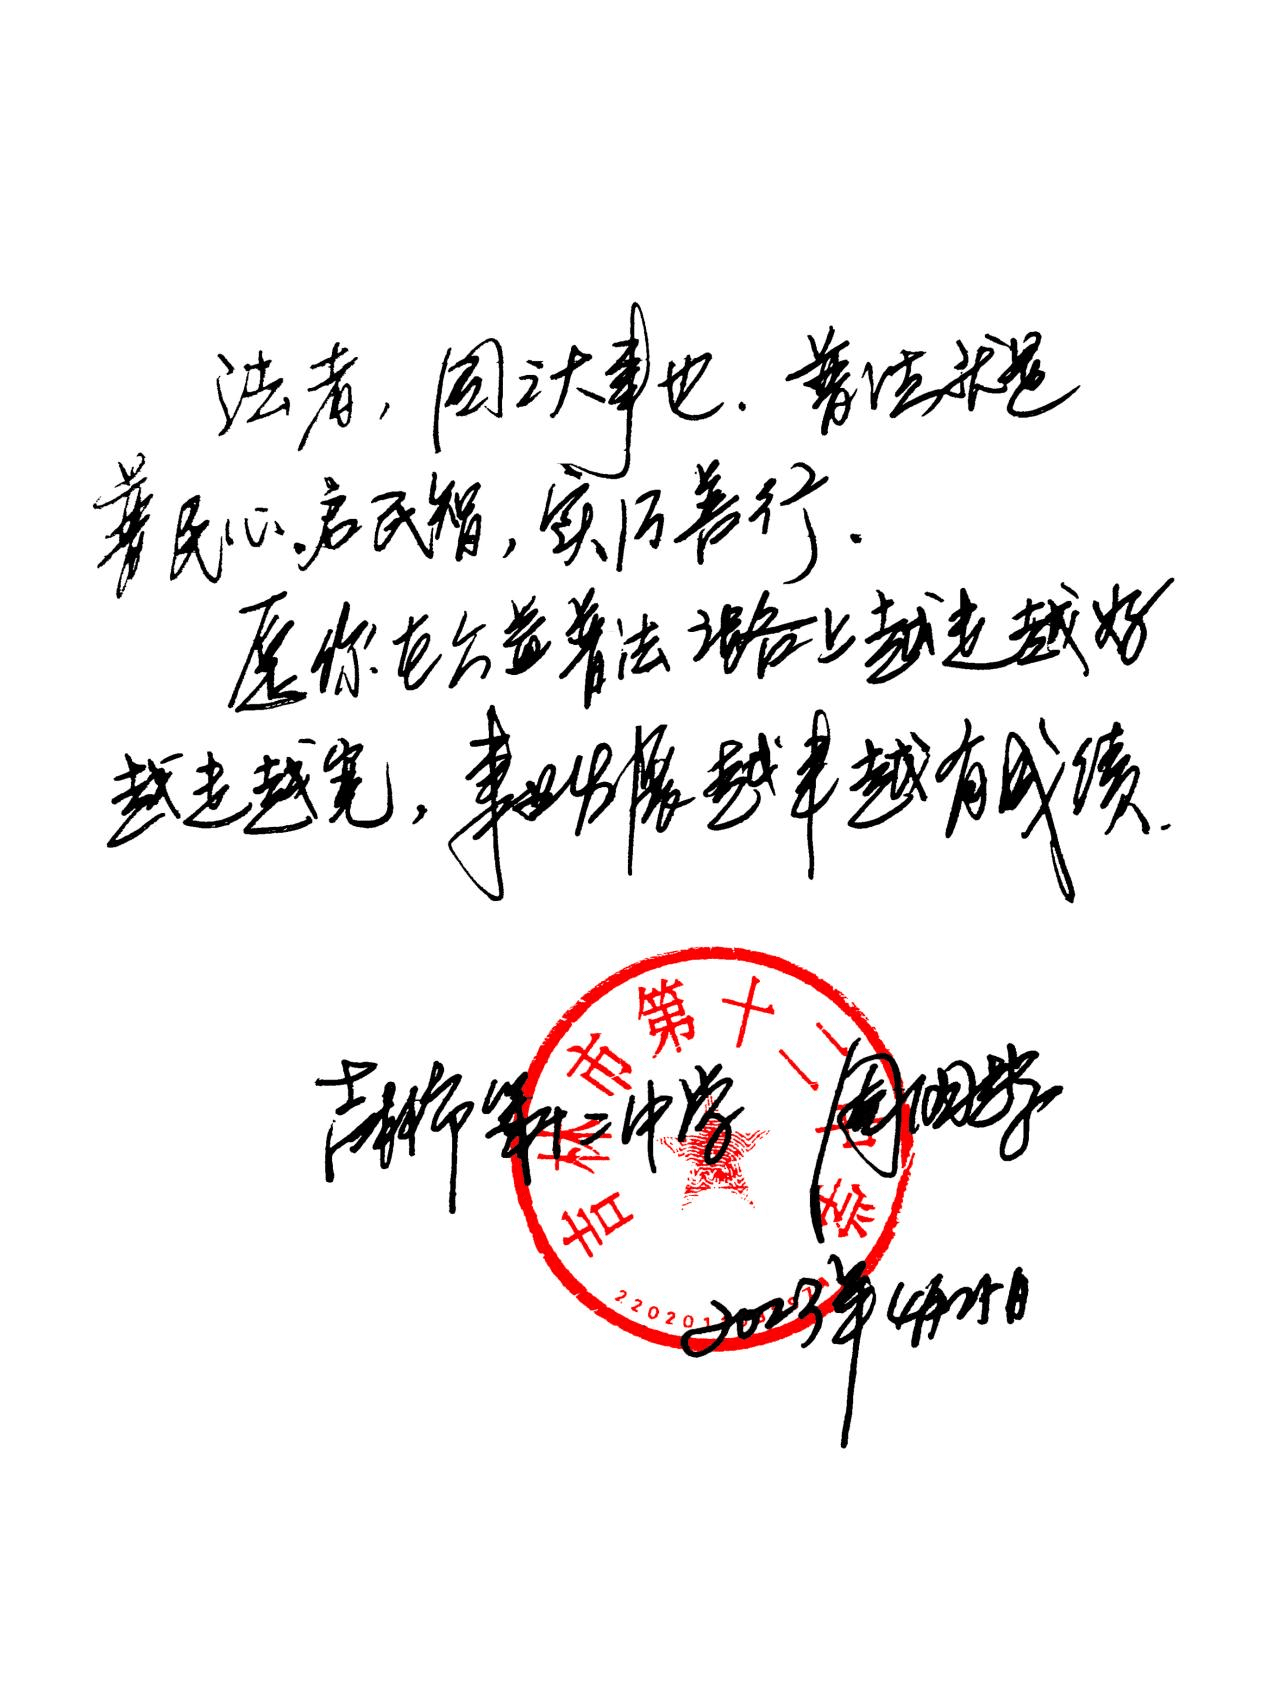 法者，国之大事也．普法就是
普民心、启民智，实乃善行．
愿你在公益普法之路上越走越好
越走越宽，事业发展越来越有成绩．
吉林市第十二中学
2023年4月25日
吉林市第十二中学